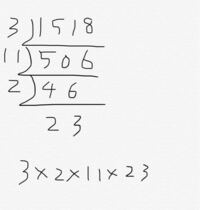 3)1518
11)506
2)46
23
3×2×11×23